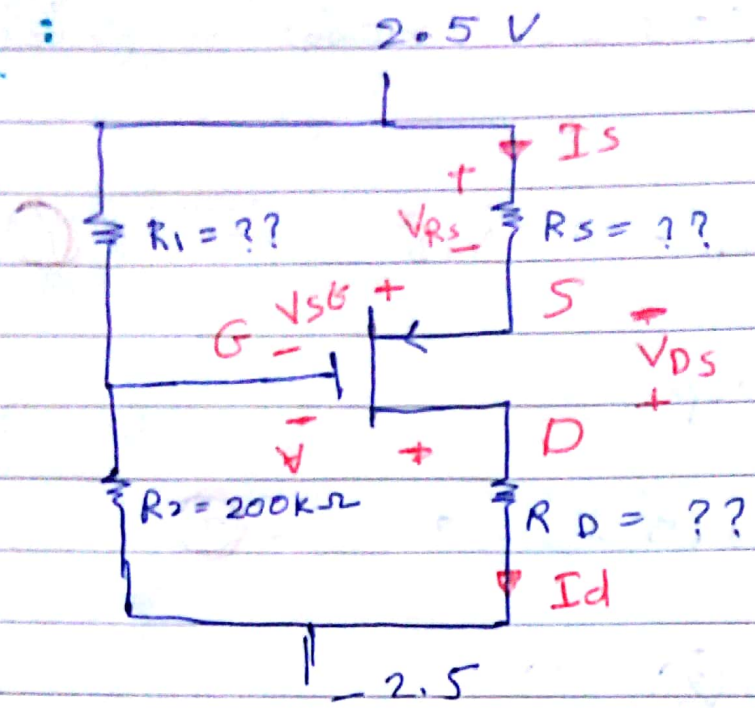 :
2.5 V
Is
+
R1 = ??
VRS
-
RS = ??
VSG +
S
G -
-
VDS
+
-
V +
D
R2 = 200KΩ
RD = ??
Id
-2.5